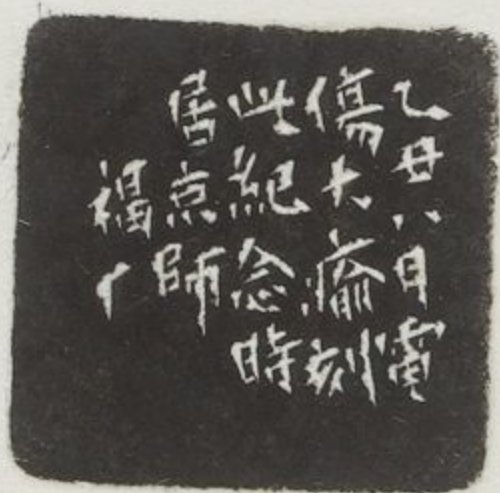 乙丑八月
傷大瘉刻
此紀念時
居京師
福厂